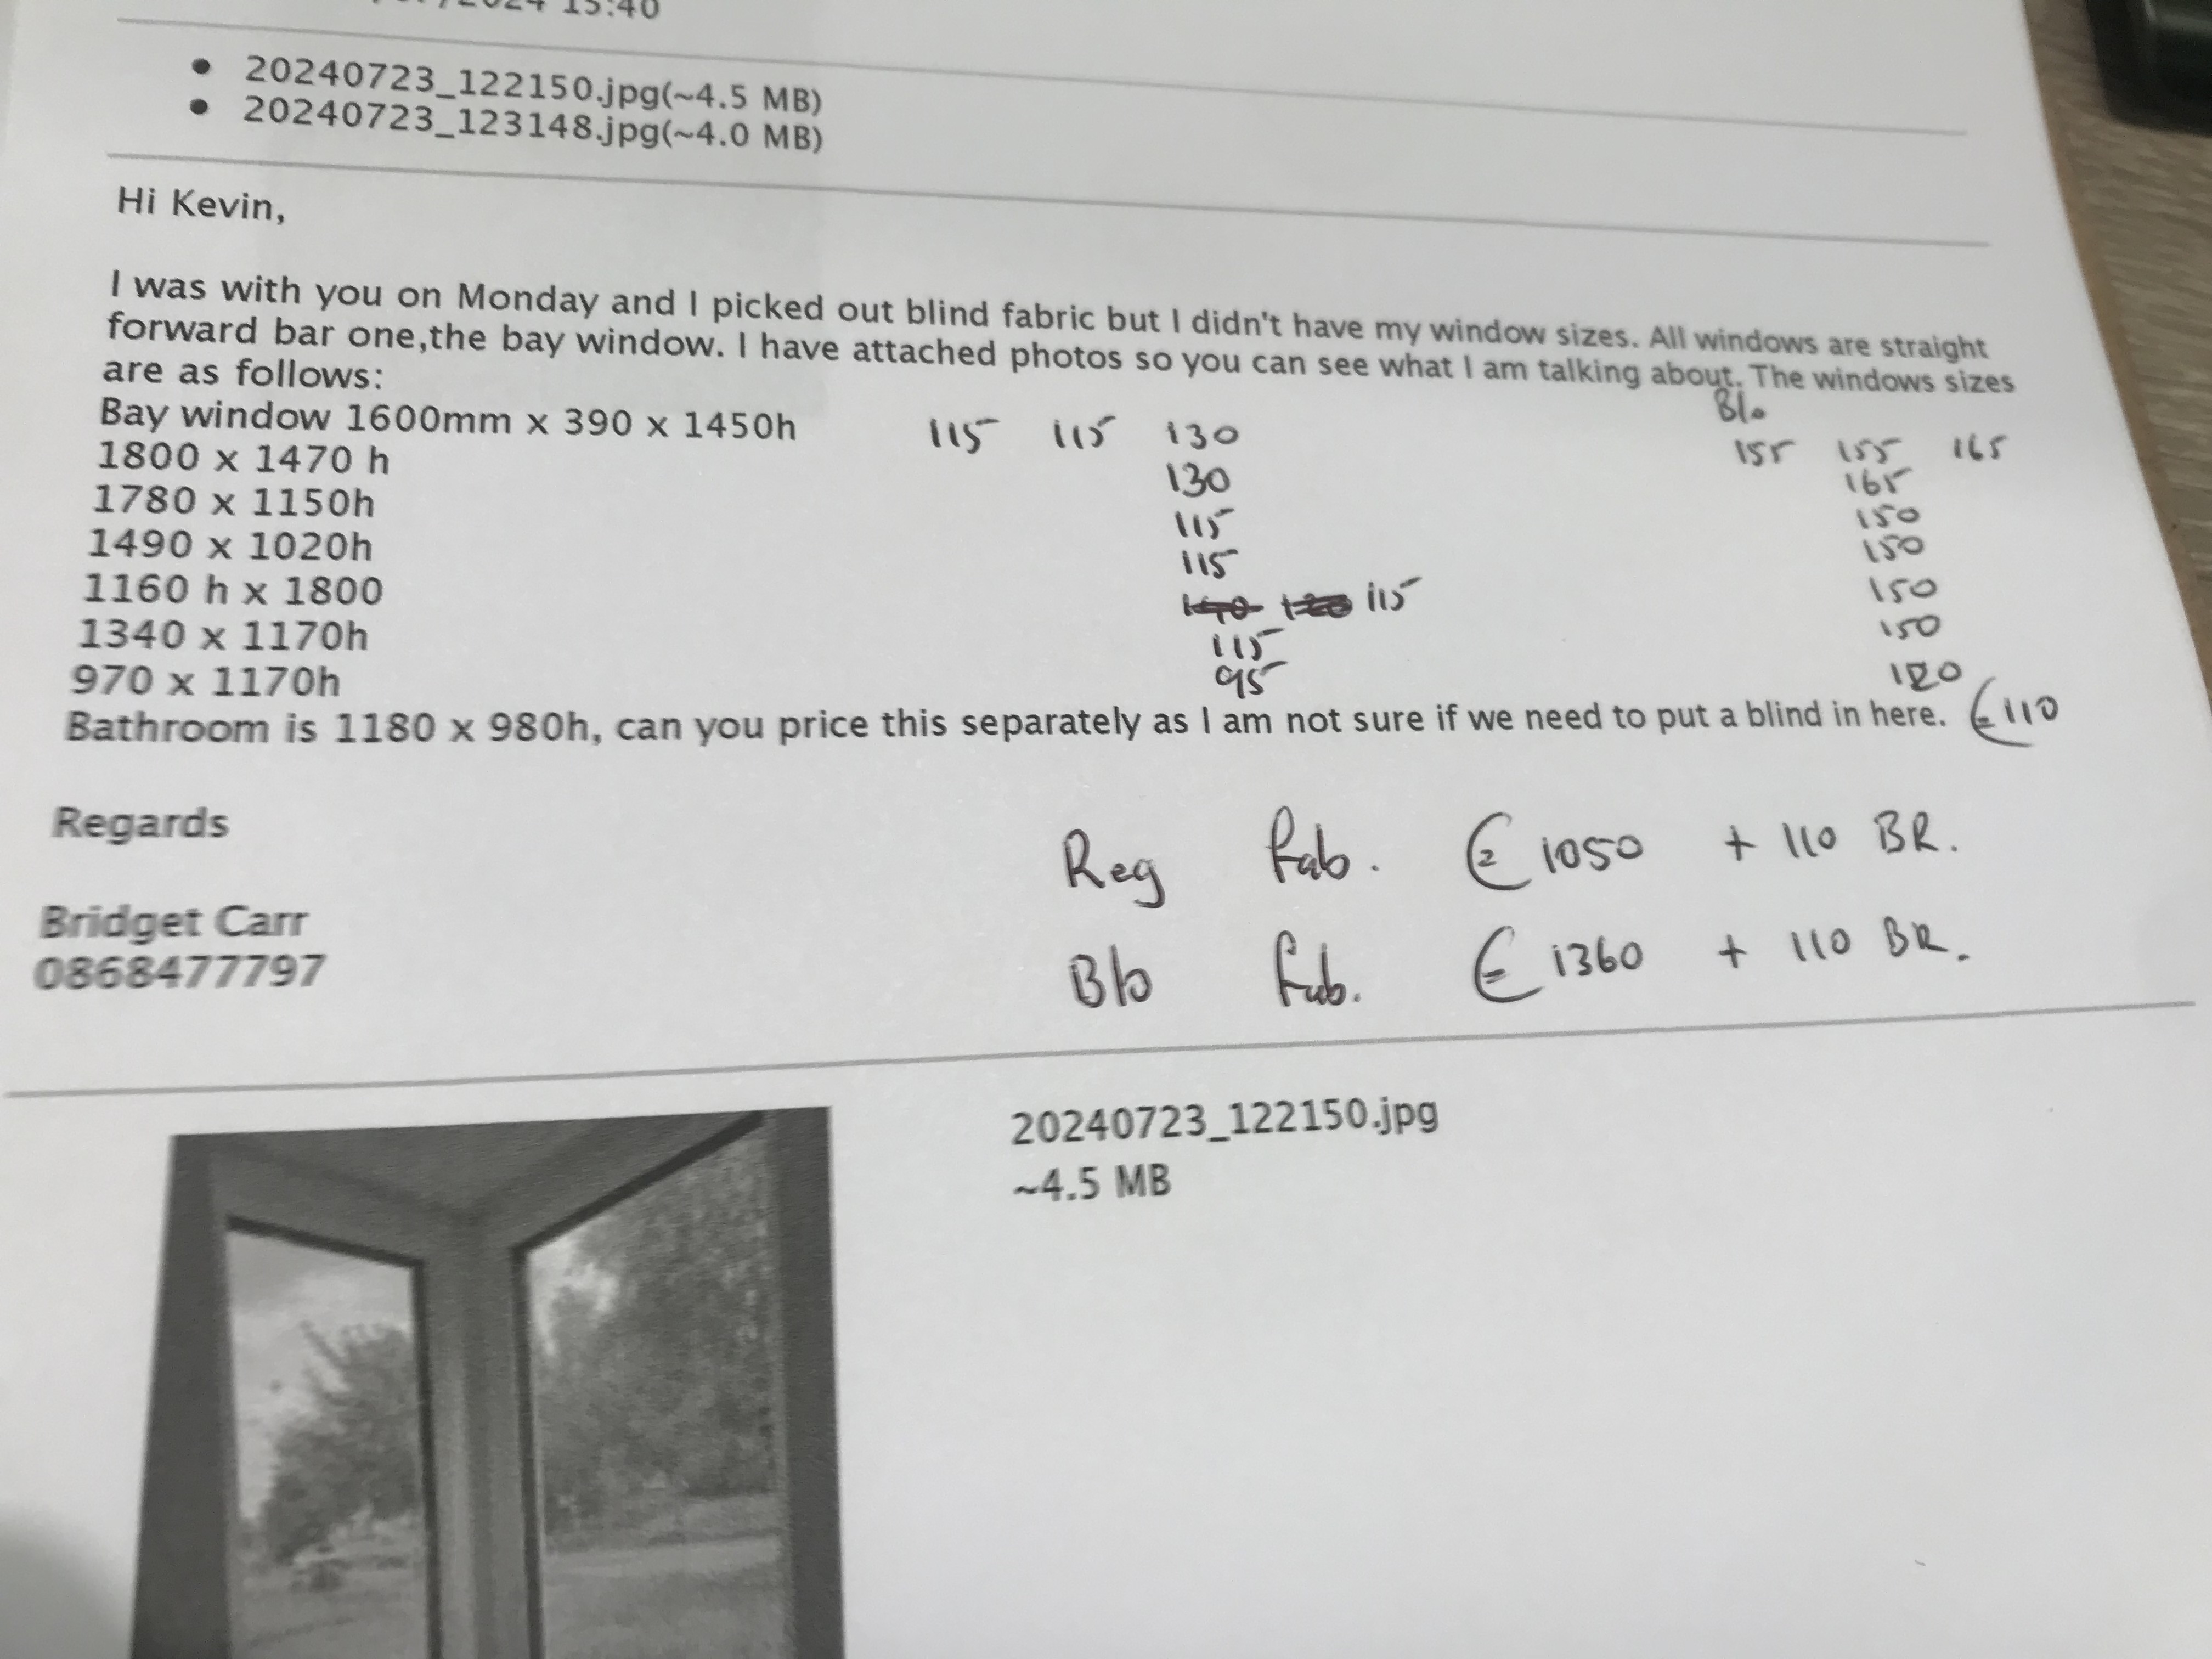 2024 15:40
• 20240723_122150.jpg(~4.5 MB)
• 20240723_123148.jpg(~4.0 MB)
Hi Kevin,
I was with you on Monday and I picked out blind fabric but I didn't have my window sizes. All windows are straight
forward bar one,the bay window. I have attached photos so you can see what I am talking about. The windows sizes
are as follows:
Blo
Bay window 1600mm x 390 x 1450h 115 115 130 155 155 165
1800 x 1470 h 130 165
1780 x 1150h 115 150
1490 x 1020h 115 150
1160 h x 1800 115 150
1340 x 1170h 115 150
970 x 1170h 95 120
Bathroom is 1180 x 980h, can you price this separately as I am not sure if we need to put a blind in here. €110
Regards
Reg Fab. € 1050 + 110 BR.
Bridget Carr
0868477797
Blo Fab. € 1360 + 110 BR.
20240723_122150.jpg
~4.5 MB